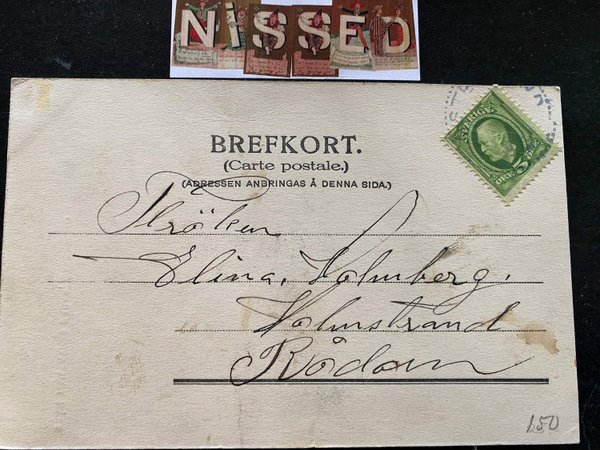 NiSSED
BREFKORT.
(Carte postale.)
(ADRESSEN ANBRINGAS Å DENNA SIDA.)
SVERIGE
5
Fröken
Elina. Holmberg.
Holmstrand
Rödön
150